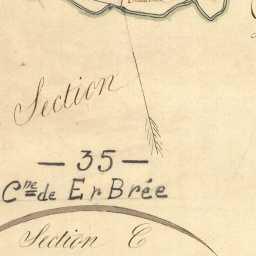 Section
— 35 —
Cne de Er Brée
Section C